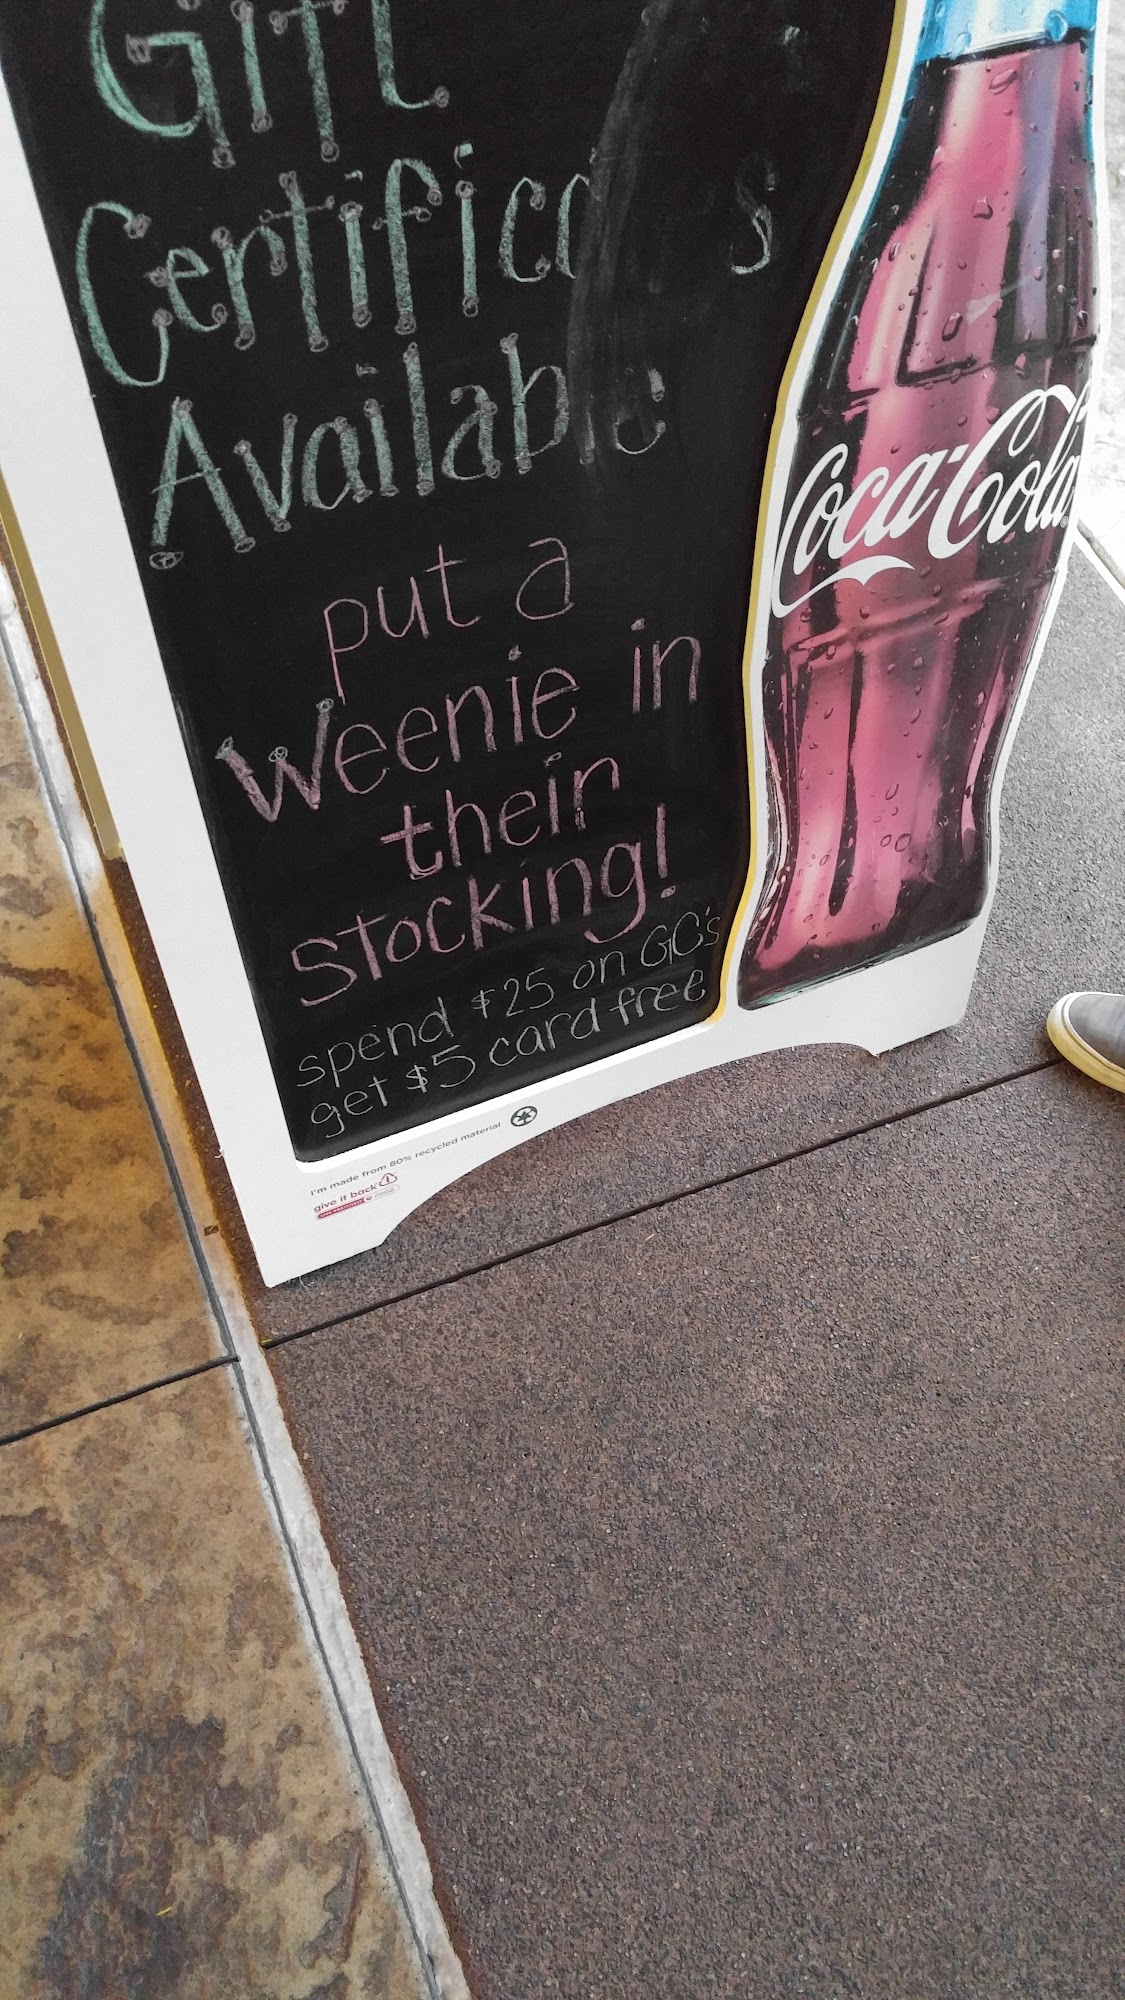 Gift
Available
put a
weenie in
their
stocking!
spend $25 on GC's
get $5 card free
Coca-Cola
I'm made from 80% recycled material
give it back